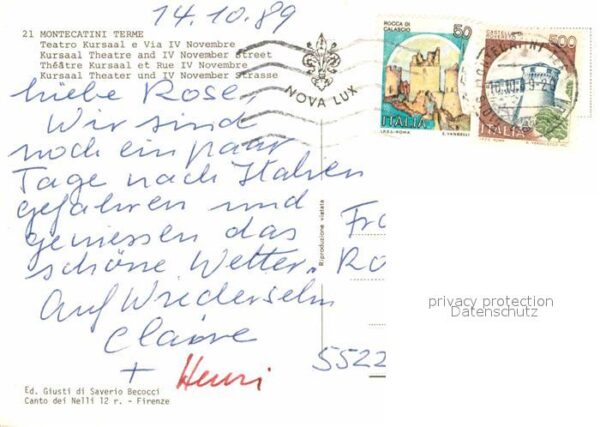 14.10.89
21 MONTECATINI TERME
Teatro Kursaal e Via IV Novembre
Kursaal Theatre and IV November Street
Théâtre Kursaal et Rue IV Novembre
Kursaal Theater und IV November Strasse
NOVA LUX
ROCCA DI CALASCIO
50
ITALIA
I.P.Z.S. ROMA
E. VANGELLI
CASTELLO DI ROVERETO
500
ITALIA
I.P.Z.S. ROMA
liebe Rose,
Wir sind
noch ein paar
Tage nach Italien
gefahren und
geniessen das
schöne Wetter.
Auf Wiedersehn
Claire
+ Henri
Riproduzione vietata
Fra
Ro
privacy protection
Datenschutz
5522
Ed. Giusti di Saverio Becocci
Canto dei Nelli 12 r. - Firenze